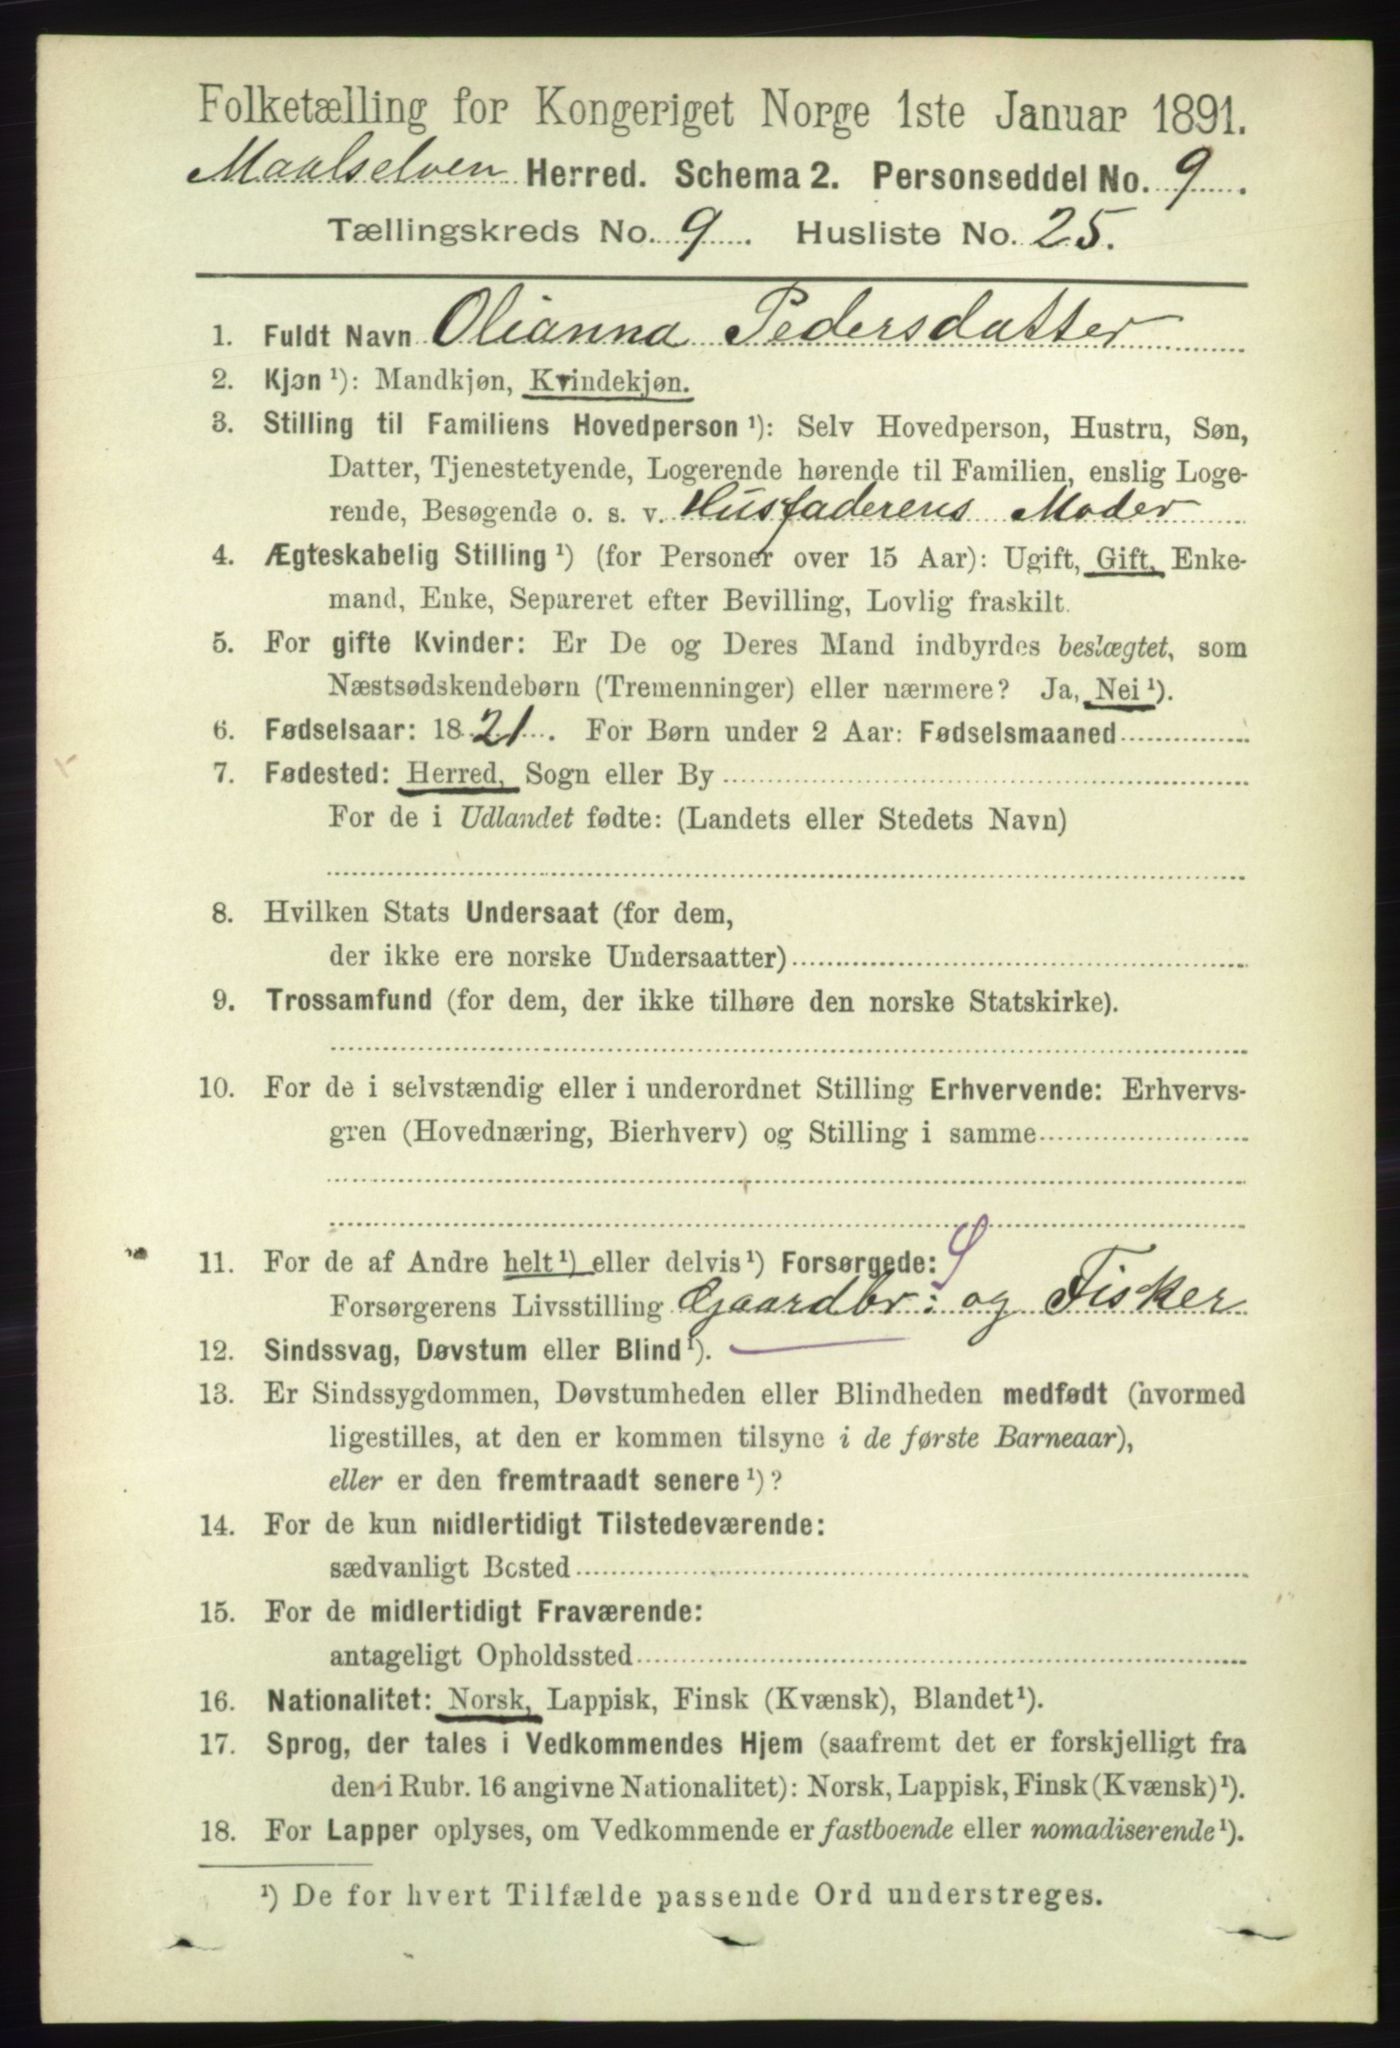 Folketælling for Kongeriget Norge 1ste Januar 1891.
Maalselven Herred. Schema 2. Personseddel No. 9.
Tællingskreds No. 9. Husliste No. 25.
1. Fuldt Navn Olianna Pedersdatter
2. Kjøn ¹): Mandkjøn, Kvindekjøn.
3. Stilling til Familiens Hovedperson ¹): Selv Hovedperson, Hustru, Søn,
Datter, Tjenestetyende, Logerende hørende til Familien, enslig Loge-
rende, Besøgende o. s. v. Husfaderens Moder
4. Ægteskabelig Stilling ¹) (for Personer over 15 Aar): Ugift, Gift, Enke-
mand, Enke, Separeret efter Bevilling, Lovlig fraskilt.
5. For gifte Kvinder: Er De og Deres Mand indbyrdes beslægtet, som
Næstsødskendebørn (Tremenninger) eller nærmere? Ja, Nei ¹).
6. Fødselsaar: 1821. For Børn under 2 Aar: Fødselsmaaned
7. Fødested: Herred, Sogn eller By
For de i Udlandet fødte: (Landets eller Stedets Navn)
8. Hvilken Stats Undersaat (for dem,
der ikke ere norske Undersaatter)
9. Trossamfund (for dem, der ikke tilhøre den norske Statskirke).
10. For de i selvstændig eller i underordnet Stilling Erhvervende: Erhvervs-
gren (Hovednæring, Bierhverv) og Stilling i samme
11. For de af Andre helt ¹) eller delvis ¹) Forsørgede:
Forsørgerens Livsstilling Gaardbr: og Fisker
12. Sindssvag, Døvstum eller Blind ¹).
13. Er Sindssygdommen, Døvstumheden eller Blindheden medfødt (hvormed
ligestilles, at den er kommen tilsyne i de første Barneaar),
eller er den fremtraadt senere ¹)?
14. For de kun midlertidigt Tilstedeværende:
sædvanligt Bosted
15. For de midlertidigt Fraværende:
antageligt Opholdssted
16. Nationalitet: Norsk, Lappisk, Finsk (Kvænsk), Blandet ¹).
17. Sprog, der tales i Vedkommendes Hjem (saafremt det er forskjelligt fra
den i Rubr. 16 angivne Nationalitet): Norsk, Lappisk, Finsk (Kvænsk) ¹).
18. For Lapper oplyses, om Vedkommende er fastboende eller nomadiserende ¹).
¹) De for hvert Tilfælde passende Ord understreges.